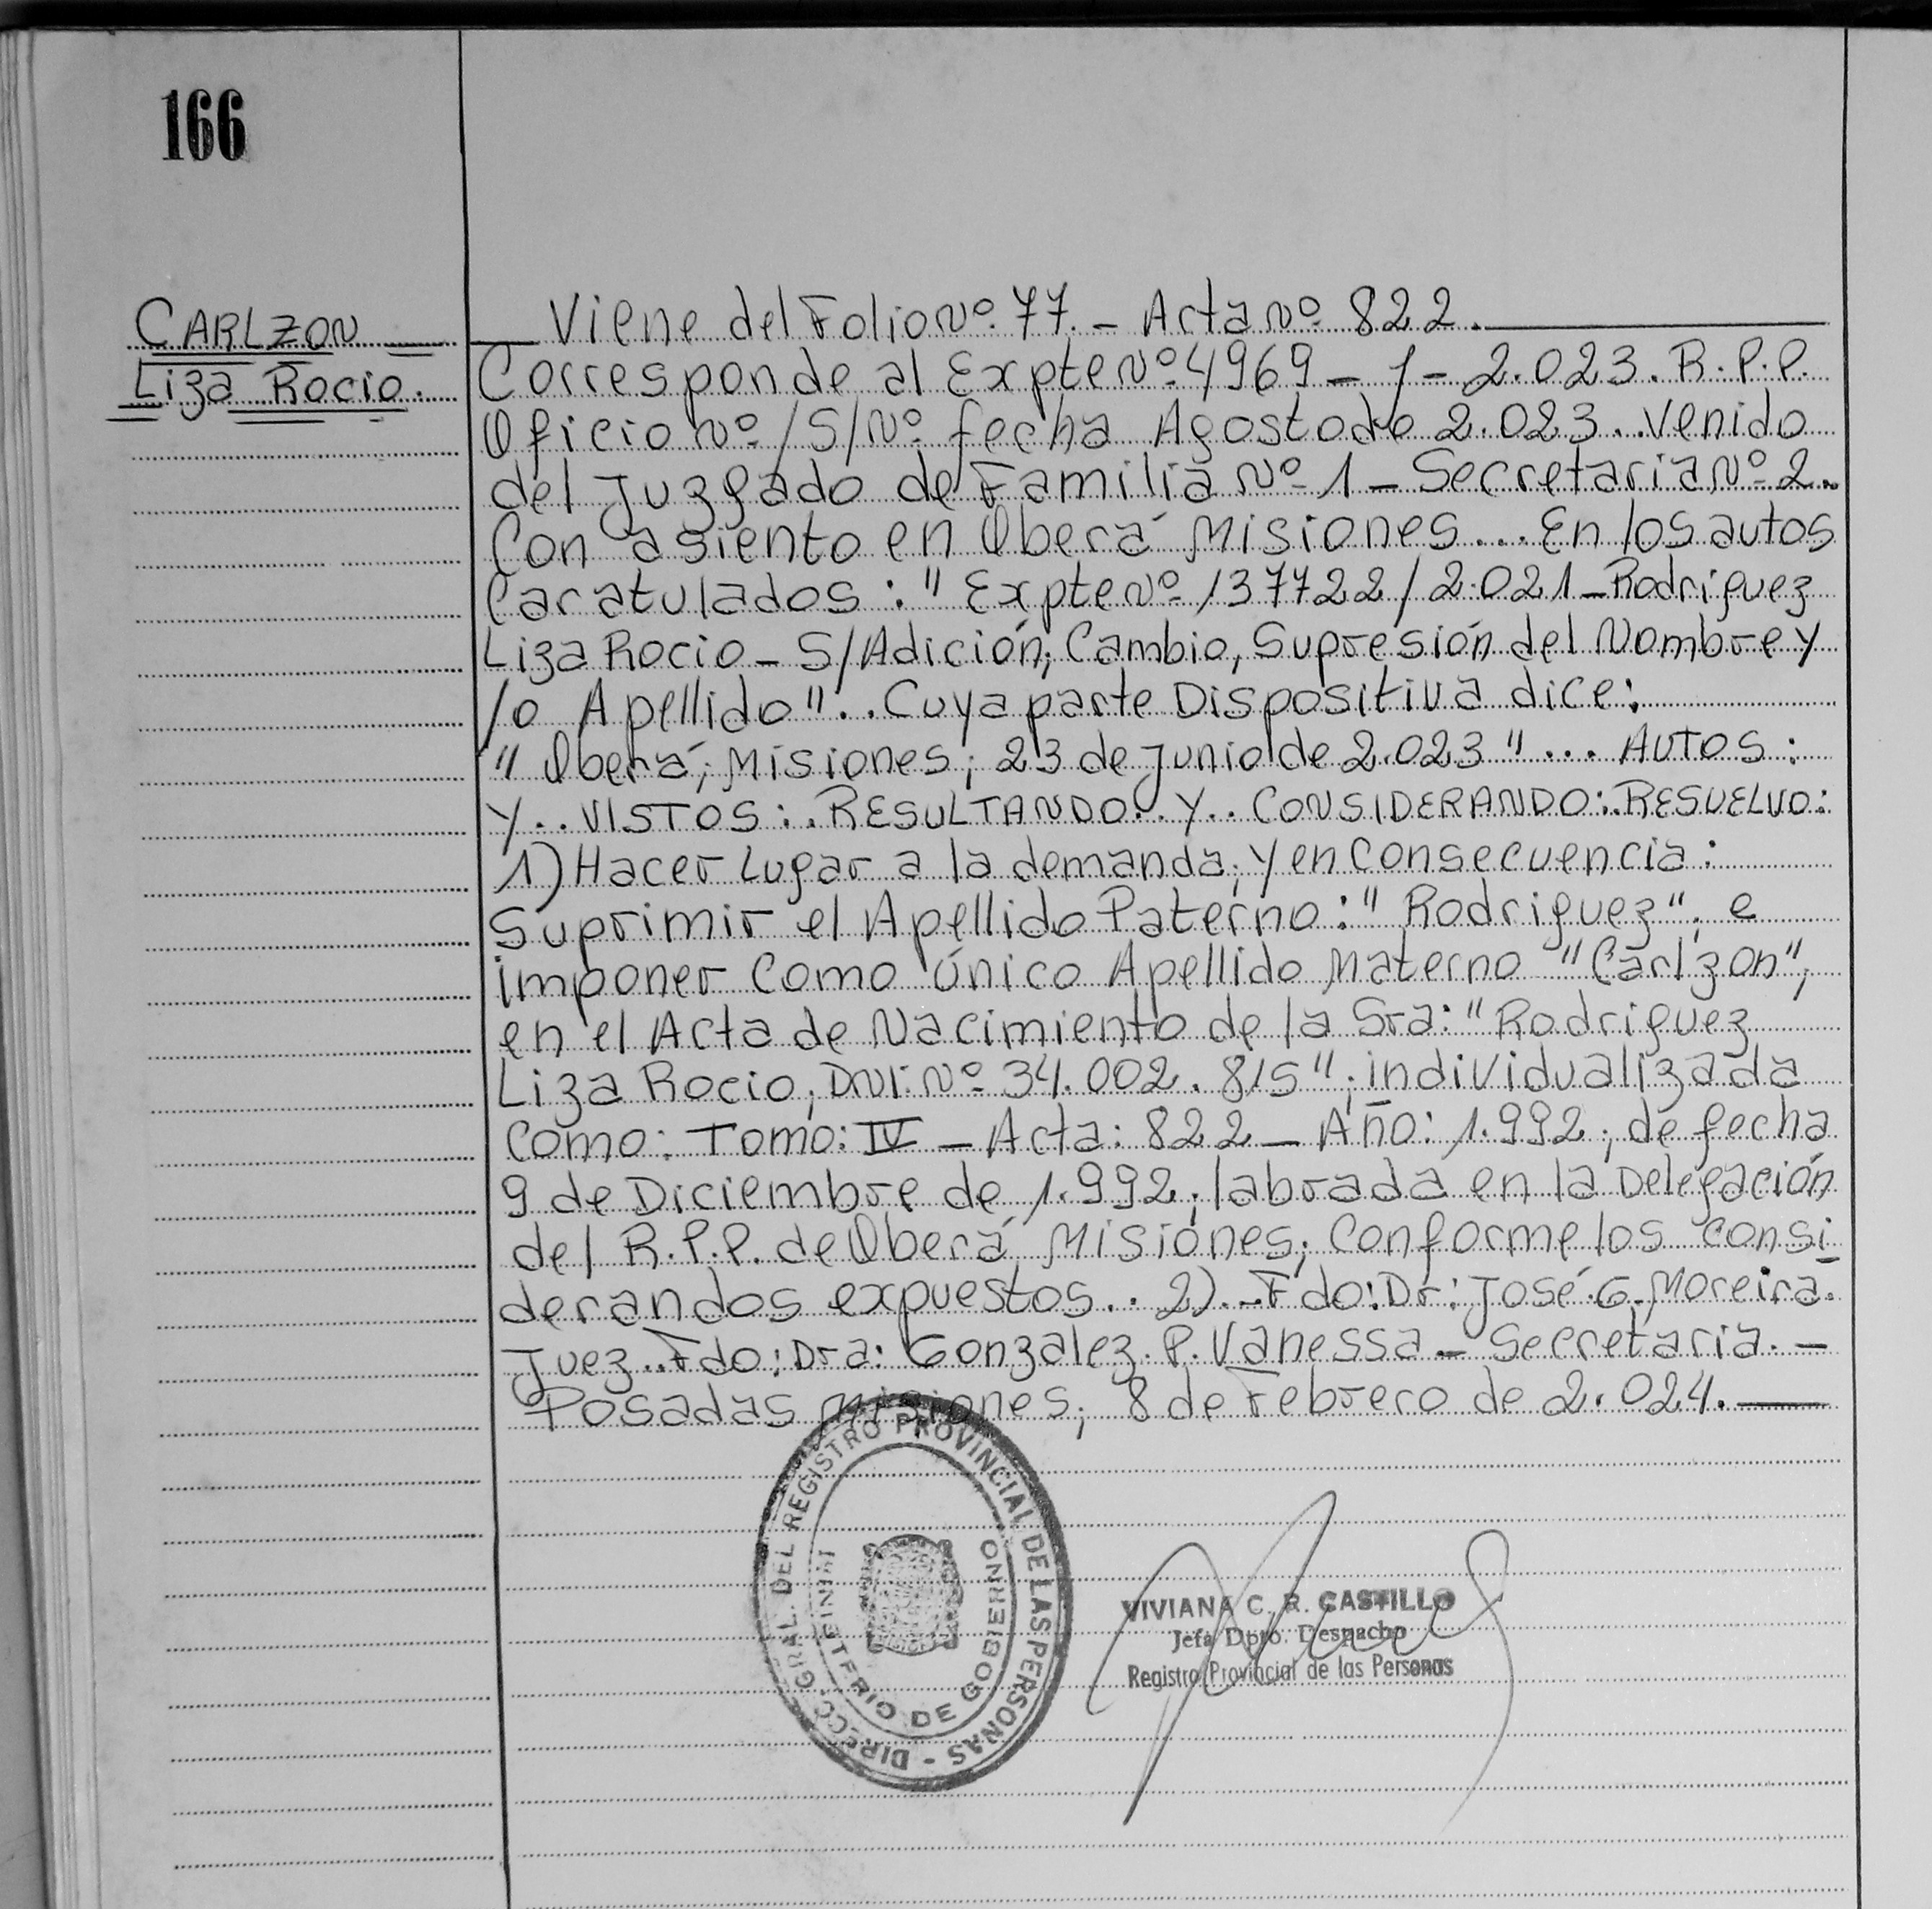 166
CARLZON
Liza Rocio.
Viene del Folio Nº 77. - Acta Nº 822.
Corresponde al Expte Nº 4969 - 1 - 2.023. R.P.P.
Oficio Nº /S/Nº fecha Agosto de 2.023.. Venido
del Juzgado de Familia Nº 1 - Secretaria Nº 2..
Con asiento en Oberá Misiones... En los autos
Caratulados: "Expte Nº 137722/2.021 - Rodriguez
Liza Rocio - S/Adición, Cambio, Supresión del Nombre y
/o Apellido".. Cuya parte Dispositiva dice:
"Oberá, Misiones, 23 de Junio de 2.023"... AUTOS:
Y.. VISTOS:. RESULTANDO.. Y.. CONSIDERANDO:. RESUELVO:
1) Hacer Lugar a la demanda, y en Consecuencia:
Suprimir el Apellido Paterno: "Rodriguez", e
imponer Como único Apellido Materno "Carlzon",
en el Acta de Nacimiento de la Sra: "Rodriguez
Liza Rocio, DNI: Nº 34.002.815", individualizada
Como: Tomo: IV - Acta: 822 - Año: 1.992, de fecha
9 de Diciembre de 1.992, labrada en la Delegación
del R.P.P. de Oberá, Misiones, Conforme los consi
derandos expuestos.. 2).. Fdo: Dr: José G. Moreira.
Juez.. Fdo: Dra: Gonzalez. P. Vanessa - Secretaria. -
Posadas Misiones, 8 de Febrero de 2.024.
DIRECC. GRAL. DEL REGISTRO PROVINCIAL DE LAS PERSONAS -
MINISTERIO DE GOBIERNO
VIVIANA C. R. CASTILLO
Jefa Dpto. Despacho
Registro Provincial de las Personas